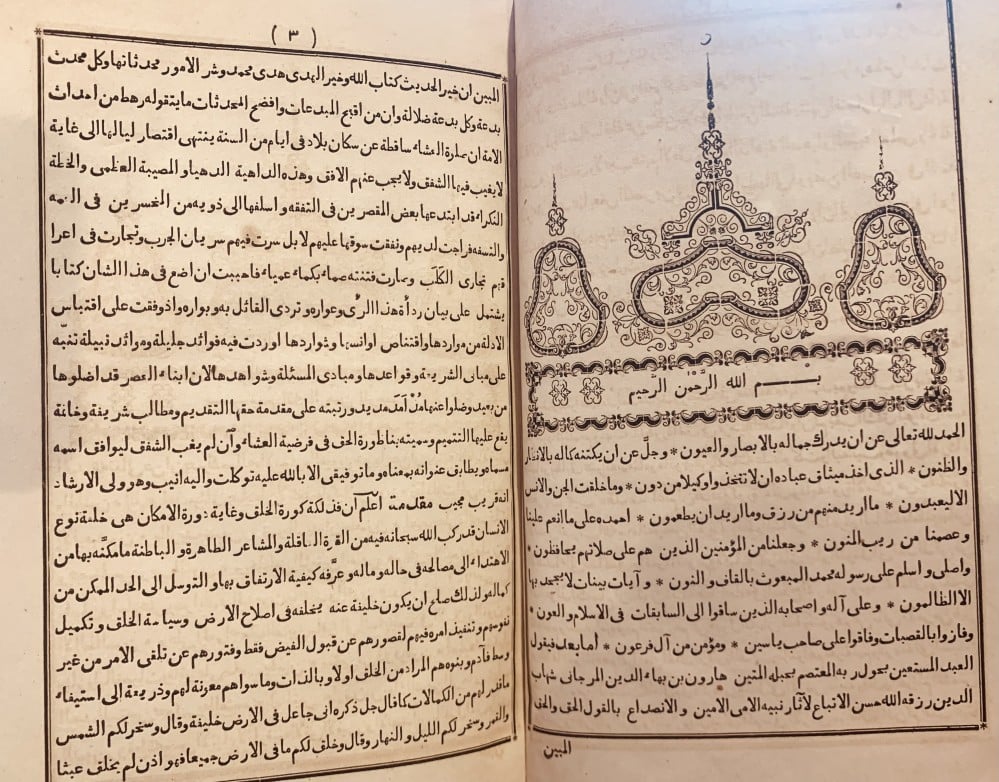 بسم الله الرحمن الرحيم
الحمد لله تعالى عن ان يدرك جماله بالابصار والعيون * وجلّ عن ان يكتنه كماله بالانظار
والظنون * الذى اخذ ميثاق عباده ان لا تتخذوا وكيلا من دون * وما خلقت الجن والانس
الا ليعبدون * ما اريد منهم من رزق وما اريد ان يطعمون * احمده على ما انعم علينا
وعصمنا من ريب المنون * وجعلنا من المؤمنين الذين هم على صلاتهم يحافظون *
واصلى واسلم على رسوله محمد المبعوث بالقاف والنون * وآيات بينات لا يجحد بها
الا الظالمون * وعلى آله واصحابه الذين ساقوا الى السابقات فى الاسلام والعون *
وفازوا بالقصبات وفاقوا على صاحب ياسين * ومؤمن من آل فرعون * أما بعد فيقول
العبد المستعين بحول ربه المعتصم بحبله المتين هارون بن بهاء الدين المرجانى شهاب
الدين رزقه الله حسن الاتباع لآثار نبيه الامى الامين والانصداع بالقول الحق والحق
المبين
( ٣ )
المبين ان خير الحديث كتاب الله وخير الهدى هدى محمد وشر الامور محدثاتها وكل محدث
بدعة وكل بدعة ضلالة وان من اقبح المبدعات وافضح المحدثات ما يتقوله رهط من احداث
الامة ان صلوة العشاء ساقطة عن سكان بلاد فى ايام من السنة ينتهى اقتصار لياليها الى غاية
لا يغيب فيها الشفق ولا يجب عنهم الافق وهذه الداهية الدهيا والمصيبة العظمى والخطة
النكراء قد ابتدعها بعض المقصرين فى التفقه واسلفها الى ذويه من المخسرين فى
والتسفه فراجت لديهم ونفقت سوقها عليهم لا بل سرت فيهم سريان الجرب وتجارت فى اعرا
قهم تجارى الكَلَب وصارت فتنته صماء بكماء عمياء فاحببت ان اضع فى هذا الشان كتابا
يشتمل على بيان ردأة هذا الرأى وعواره وتردى القائل به وبواره واذ وفقت على اقتباس
الادلة من مواردها واقتناص اوانسها وشواردها اوردت فيه فوائد جليلة وموائد نبيلة تنبّه
على مبانى الشريعة وقواعدها ومبادى المسئلة وشواهدها لان ابناء العصر قد اضلوها
من بعيد وضلوا عنها مُذ اَمَدٍ مديد ورتبته على مقدمة حقها التقديم ومطالب شريفة وخاتمة
يقع عليها التتميم وسميته بناظورة الحق فى فرضية العشاء وان لم يغب الشفق ليوافق اسمه
مسماه ويطابق عنوانه بمعناه وما توفيقى الا بالله عليه توكلت واليه انيب وهو ولى الارشاد
انه قريب مجيب مقدمة اعلم ان فذلكة كورة الخلق وغاية دورة الامكان هى خلقة نوع
الانسان قد ركب الله سبحانه فيه من القوة العاقلة والمشاعر الظاهرة والباطنة ما مكنه بها من
الاهتداء الى مصالحه فى حاله وماله وعرّفه كيفية الارتفاق بها والتوسل الى الحد الممكن من
كماله ولذلك صلح ان يكون خليفة عنه يخلفه فى اصلاح الارض وسياسة الخلق وتكميل
نفوسهم وتنفيذ امره فيهم لقصورهم عن قبول الفيض فقط وفتورهم عن تلقى الامر من غير
وسط فآدم وبنوه هم المراد من الخلق اولا وبالذات وما سواهم معونة لهم وذريعة الى استيفاء
ما قدر لهم من الكمالات كما قال جل ذكره انى جاعل فى الارض خليفة وقال وسخر لكم الشمس
والقمر وسخر لكم الليل والنهار وقال وخلق لكم ما فى الارض جميعا فهو اذن لم يخلق عبثا